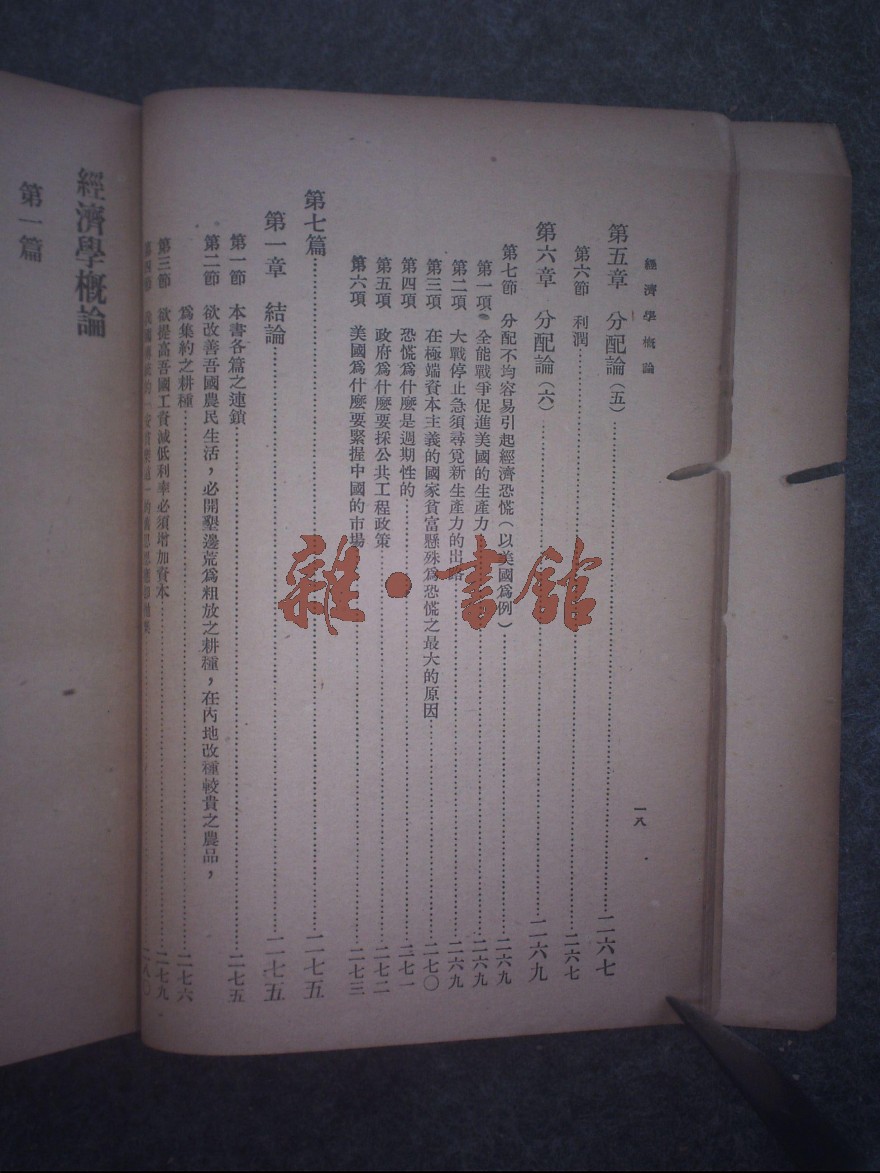 經濟學概論
一八
第五章 分配論(五)……二六七
第六節 利潤……二六七
第六章 分配論(六)……二六九
第七節 分配不均容易引起經濟恐慌(以美國爲例)……二六九
第一項 全能戰爭促進美國的生產力……二六九
第二項 大戰停止急須尋覓新生產力的出路……二六九
第三項 在極端資本主義的國家貧富懸殊爲恐慌之最大的原因……二七〇
第四項 恐慌爲什麼是週期性的……二七一
第五項 政府爲什麼要採公共工程政策……二七二
第六項 美國爲什麼要緊握中國的市場……二七三
第七篇……二七五
第一章 結論……二七五
第一節 本書各篇之連鎖……二七五
第二節 欲改善吾國農民生活,必開墾邊荒爲粗放之耕種,在內地改種較貴之農品,
爲集約之耕種……二七六
第三節 欲提高吾國工資減低利率必須增加資本……二七九
第四節……二八〇
經濟學概論
第一篇
雜·書館